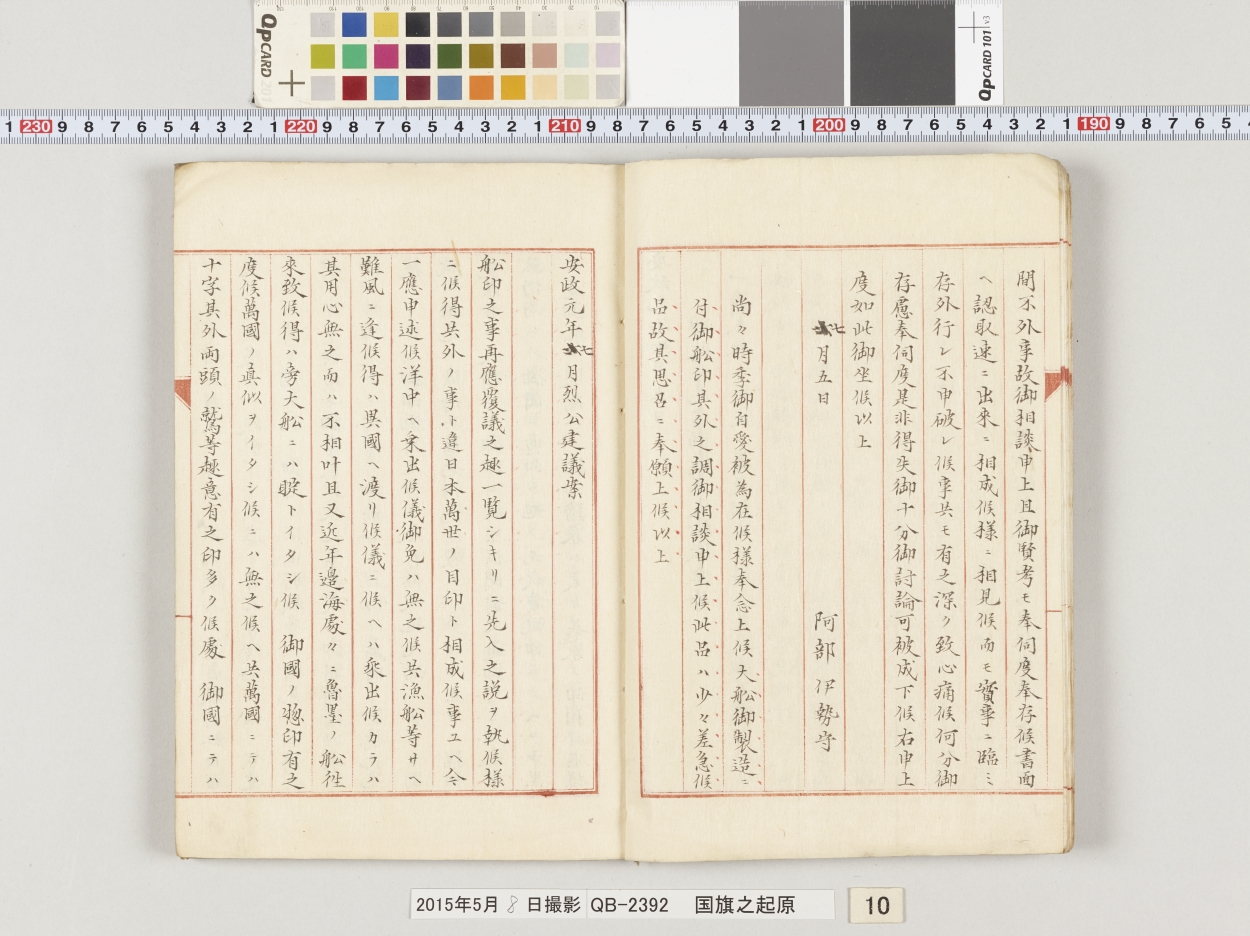 間不外事故御相談申上且御賢考モ奉伺度奉存候書面
ヘ認取速ニ出来ニ相成候様ニ相見候而モ實事ニ臨ミ
存外行レ不申破レ候事共モ有之深ク致心痛候何分御
存慮奉伺度是非得失御十分御討論可被成下候右申上
度如此御坐候以上
七月五日
阿部伊勢守
尚々時季御自愛被為在候様奉念上候大船御製造ニ
付御船印其外之調御相談申上候此品ハ少々差急候
品故其思召ニ奉願上候以上
安政元年七月烈公建議案
船印之事再應覆議之趣一覧シキリニ先入之説ヲ執候様
ニ候得共外ノ事ト違日本萬世ノ目印ト相成候事ユヘ今
一應申述候洋中ヘ乗出候儀御免ハ無之候共漁船等サヘ
難風ニ逢候得ハ異國ヘ渡リ候儀ニ候ヘハ乗出候カラハ
其用心無之而ハ不相叶且又近年邊海處々ニ魯墨ノ船往
來致候得ハ旁大船ニハ聢トイタシ候 御國ノ惣印有之
度候萬國ノ真似ヲイタシ候ニハ無之候ヘ共萬國ニテハ
十字其外両頭ノ鷲等趣意有之印多ク候處 御國ニテハ
2015年5月8日撮影 QB-2392 国旗之起原
10
QPCARD 201
QPCARD 101 v3
1 230 9 8 7 6 5 4 3 2 1 220 9 8 7 6 5 4 3 2 1 210 9 8 7 6 5 4 3 2 1 200 9 8 7 6 5 4 3 2 1 190 9 8 7 6 5